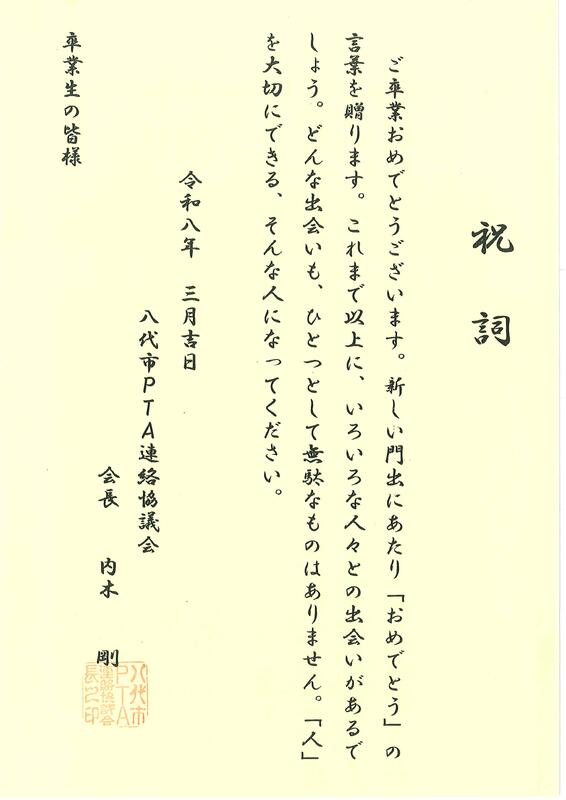 祝詞
ご卒業おめでとうございます。新しい門出にあたり「おめでとう」の
言葉を贈ります。これまで以上に、いろいろな人々との出会いがあるで
しょう。どんな出会いも、ひとつとして無駄なものはありません。「人」
を大切にできる、そんな人になってください。
令和八年　三月吉日
八代市ＰＴＡ連絡協議会
会長　内木　剛
八代市
ＰＴＡ
連絡協議会
長之印
卒業生の皆様